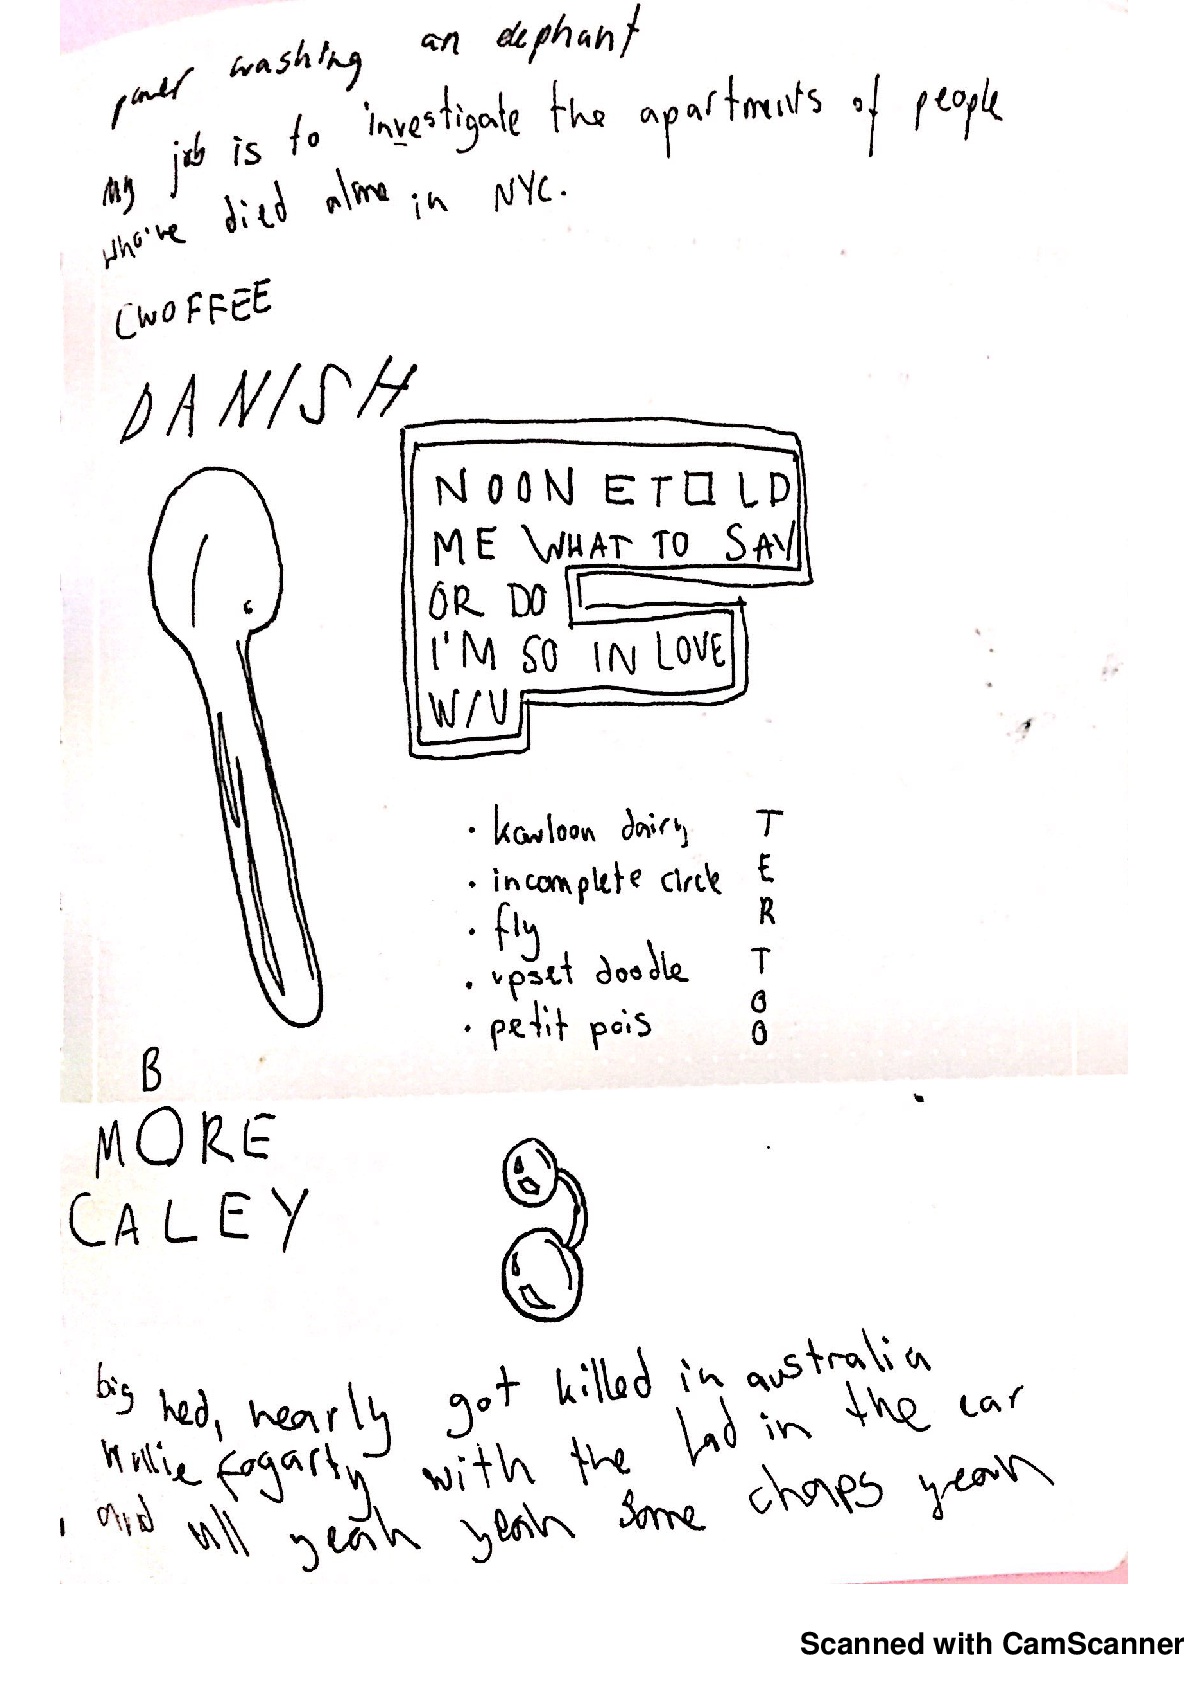 power washing an elephant
my job is to investigate the apartments of people
who've died alone in NYC.
CWOFFEE
DANISH
NOONETOLD
ME WHAT TO SAY
OR DO
I'M SO IN LOVE
W/U
• kowloon dairy
• incomplete circle
• fly
• upset doodle
• petit pois
T
E
R
T
O
O
B
MORE
CALEY
big hed, nearly got killed in australia
fogarty with the lad in the car
and all yeah yeah some chaps yeah
Scanned with CamScanner